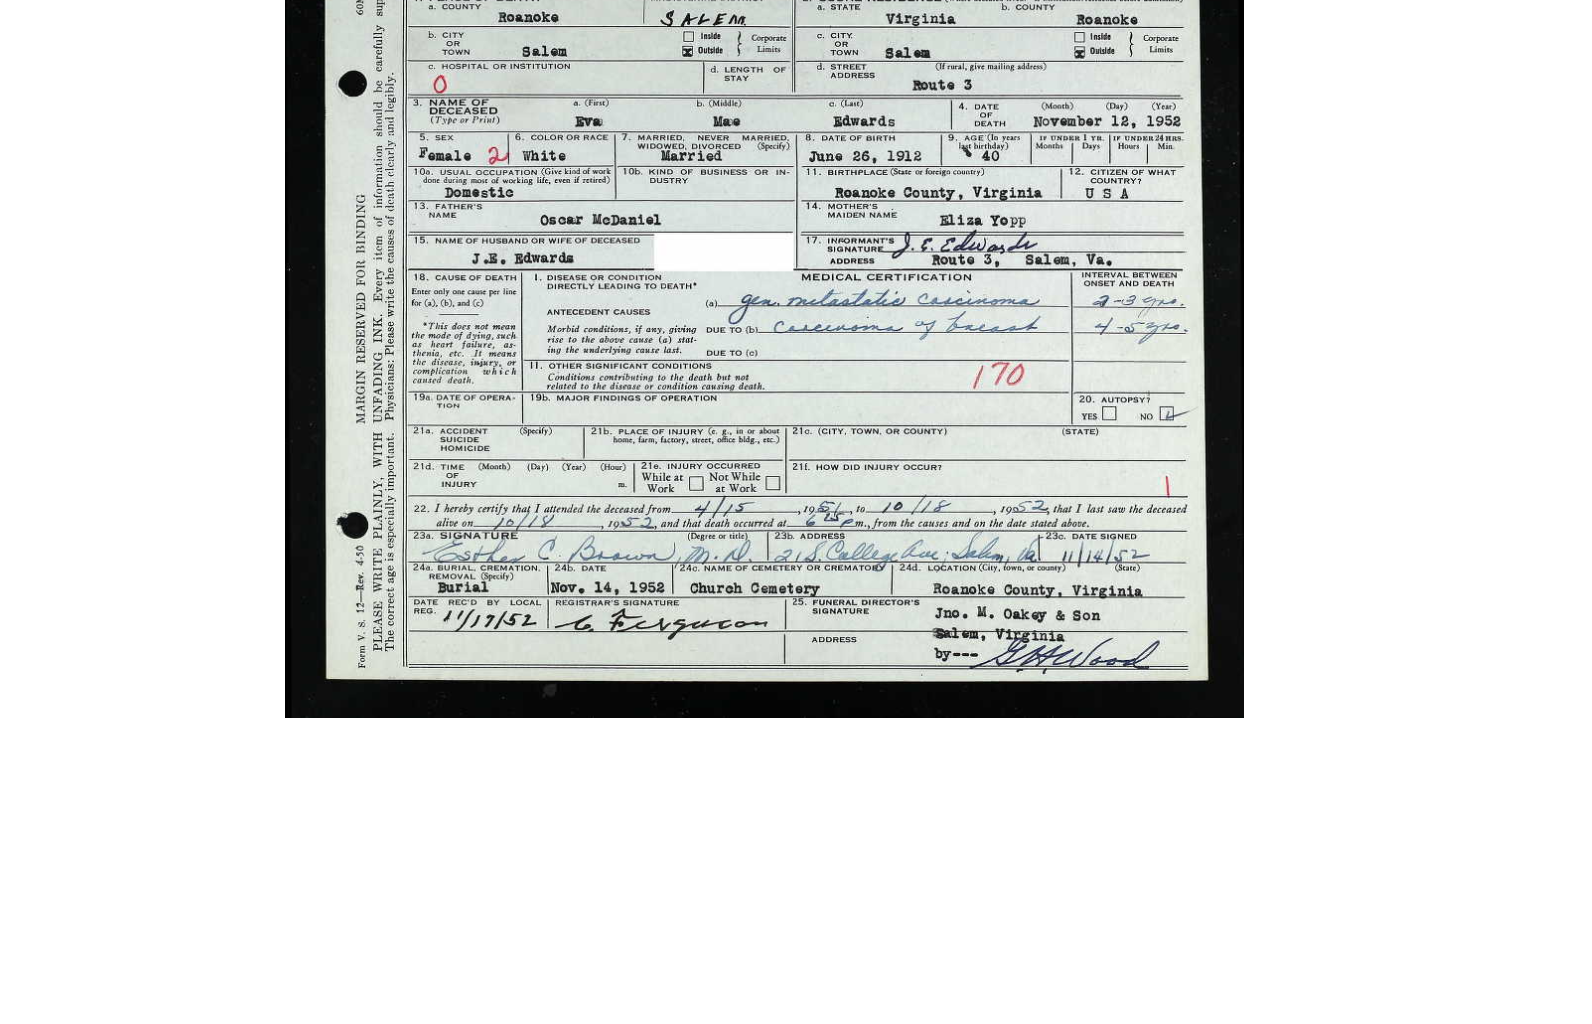 a. COUNTY Roanoke SALEM a. STATE Virginia b. COUNTY Roanoke
b. CITY OR TOWN Salem Inside Outside Corporate Limits c. CITY OR TOWN Salem Inside Outside Corporate Limits
c. HOSPITAL OR INSTITUTION 0 d. LENGTH OF STAY d. STREET ADDRESS (If rural, give mailing address) Route 3
3. NAME OF DECEASED (Type or Print) a. (First) Eva b. (Middle) Mae c. (Last) Edwards 4. DATE OF DEATH (Month) (Day) (Year) November 12, 1952
5. SEX Female 2 6. COLOR OR RACE White 7. MARRIED, NEVER MARRIED, WIDOWED, DIVORCED (Specify) Married 8. DATE OF BIRTH June 26, 1912 9. AGE (In years last birthday) 40 IF UNDER 1 YR. Months Days IF UNDER 24 HRS. Hours Min.
10a. USUAL OCCUPATION (Give kind of work done during most of working life, even if retired) Domestic 10b. KIND OF BUSINESS OR INDUSTRY 11. BIRTHPLACE (State or foreign country) Roanoke County, Virginia 12. CITIZEN OF WHAT COUNTRY? U S A
13. FATHER'S NAME Oscar McDaniel 14. MOTHER'S MAIDEN NAME Eliza Yopp
15. NAME OF HUSBAND OR WIFE OF DECEASED J.E. Edwards 17. INFORMANT'S SIGNATURE J. E. Edwards
ADDRESS Route 3, Salem, Va.
18. CAUSE OF DEATH Enter only one cause per line for (a), (b), and (c)
*This does not mean the mode of dying, such as heart failure, asthenia, etc. It means the disease, injury, or complication which caused death.
MEDICAL CERTIFICATION INTERVAL BETWEEN ONSET AND DEATH
I. DISEASE OR CONDITION DIRECTLY LEADING TO DEATH* (a) gen. metastatic carcinoma 2-3 yrs.
ANTECEDENT CAUSES
Morbid conditions, if any, giving rise to the above cause (a) stating the underlying cause last. DUE TO (b) Carcinoma of breast 4-5 yrs.
DUE TO (c)
II. OTHER SIGNIFICANT CONDITIONS
Conditions contributing to the death but not related to the disease or condition causing death. 170
19a. DATE OF OPERATION 19b. MAJOR FINDINGS OF OPERATION 20. AUTOPSY? YES NO
21a. ACCIDENT SUICIDE HOMICIDE (Specify) 21b. PLACE OF INJURY (e. g., in or about home, farm, factory, street, office bldg., etc.) 21c. (CITY, TOWN, OR COUNTY) (STATE)
21d. TIME OF INJURY (Month) (Day) (Year) (Hour) m. 21e. INJURY OCCURRED While at Work Not While at Work 21f. HOW DID INJURY OCCUR? 1
22. I hereby certify that I attended the deceased from 4/15, 1951, to 10/18, 1952, that I last saw the deceased
alive on 10/18, 1952, and that death occurred at 6 25 p m., from the causes and on the date stated above.
23a. SIGNATURE (Degree or title) Esther C. Brown, M.D. 23b. ADDRESS 21 S. College Ave., Salem, Va. 23c. DATE SIGNED 11/14/52
24a. BURIAL, CREMATION, REMOVAL (Specify) Burial 24b. DATE Nov. 14, 1952 24c. NAME OF CEMETERY OR CREMATORY Church Cemetery 24d. LOCATION (City, town, or county) (State) Roanoke County, Virginia
DATE REC'D BY LOCAL REG. 11/17/52 REGISTRAR'S SIGNATURE C. Ferguson 25. FUNERAL DIRECTOR'S SIGNATURE Jno. M. Oakey & Son
ADDRESS Salem, Virginia
by--- G H Wood
Form V. S. 12—Rev. 4-50 MARGIN RESERVED FOR BINDING 60M
PLEASE WRITE PLAINLY, WITH UNFADING INK. Every item of information should be carefully sup
The correct age is especially important. Physicians: Please write the causes of death clearly and legibly.